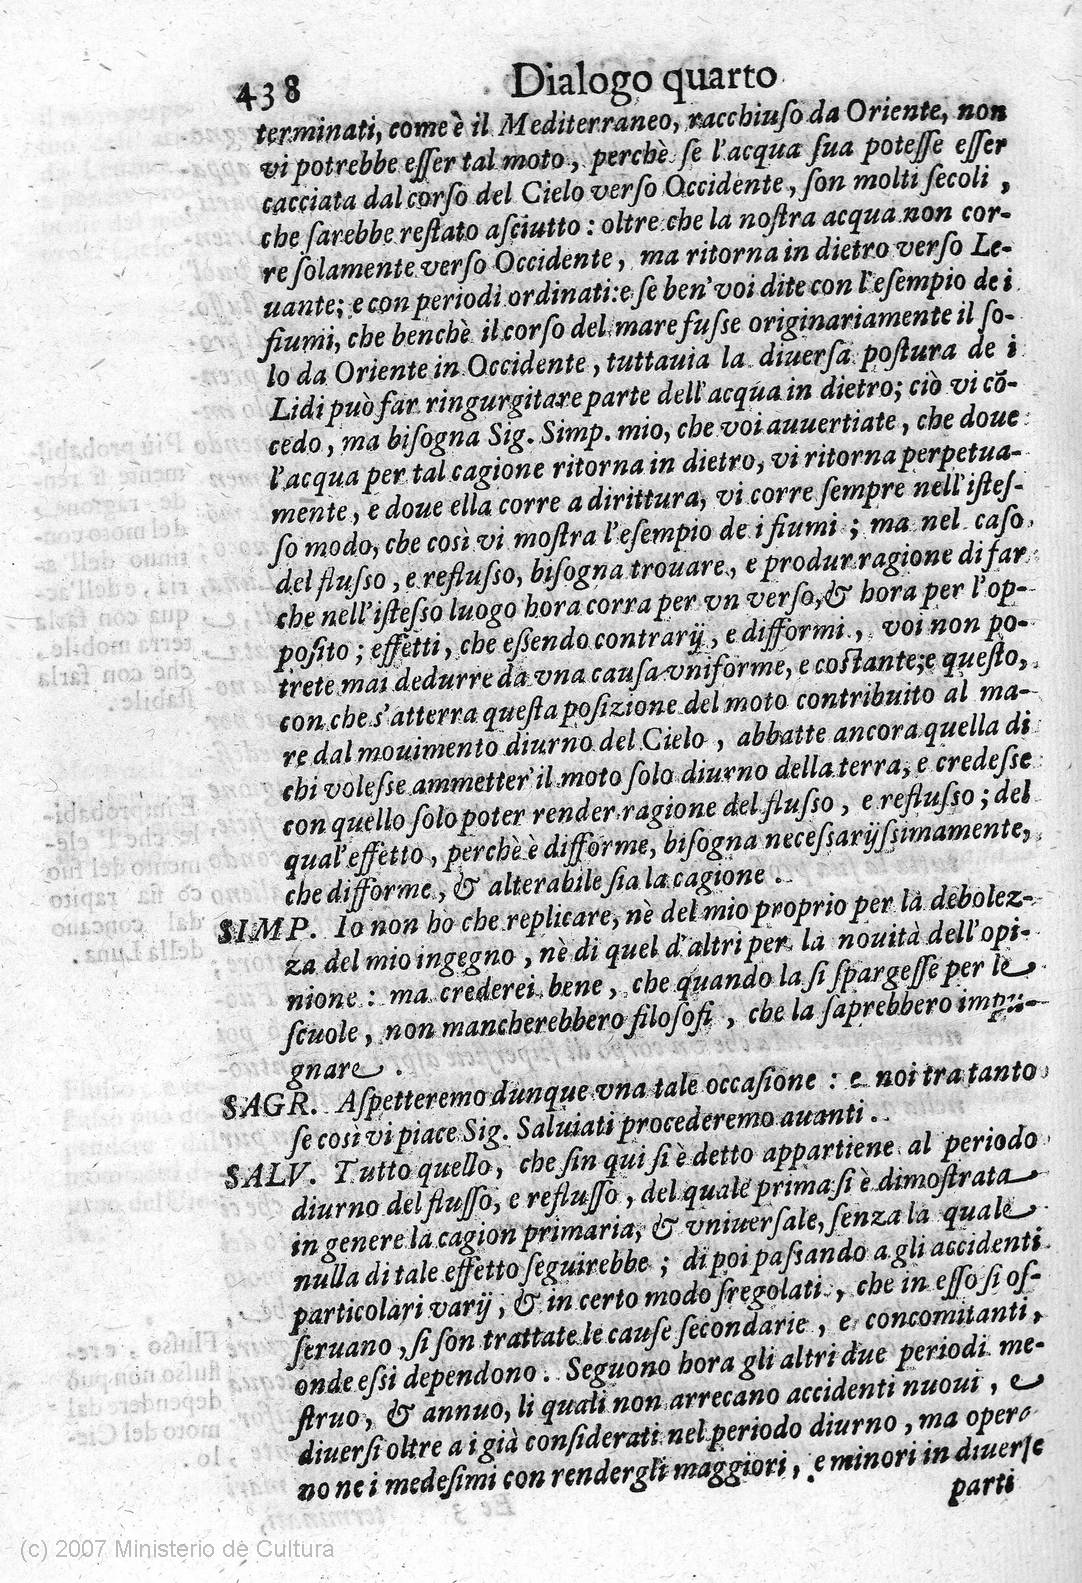 438 Dialogo quarto
terminati, come è il Mediterraneo, racchiuſo da Oriente, non
vi potrebbe eſſer tal moto, perchè ſe l'acqua ſua poteſſe eſſer
cacciata dal corſo del Cielo verſo Occidente, ſon molti ſecoli,
che ſarebbe reſtato aſciutto: oltre che la noſtra acqua non cor-
re ſolamente verſo Occidente, ma ritorna in dietro verſo Le-
uante; e con periodi ordinati: e ſe ben' voi dite con l'eſempio de i
fiumi, che benchè il corſo del mare fuſse originariamente il ſo-
lo da Oriente in Occidente, tuttauia la diuerſa poſtura de i
Lidi può far ringurgitare parte dell'acqua in dietro; ciò vi cō-
cedo, ma biſogna Sig. Simp. mio, che voi auuertiate, che doue
l'acqua per tal cagione ritorna in dietro, vi ritorna perpetua-
mente, e doue ella corre a dirittura, vi corre ſempre nell'iſteſ-
ſo modo, che così vi moſtra l'eſempio de i fiumi; ma nel caſo
del fluſso, e refluſso, biſogna trouare, e produr ragione di far
che nell'iſteſso luogo hora corra per vn verſo, & hora per l'op-
poſito; effetti, che eſsendo contrarij, e difformi, voi non po-
trete mai dedurre da vna cauſa vniforme, e coſtante; e queſto,
con che s'atterra queſta poſizione del moto contribuito al ma-
re dal mouimento diurno del Cielo, abbatte ancora quella di
chi voleſse ammetter' il moto ſolo diurno della terra, e credeſse
con quello ſolo poter render ragione del fluſso, e refluſso; del
qual'effetto, perchè è difforme, biſogna neceſsarijſsimamente,
che difforme, & alterabile ſia la cagione.
SIMP. Io non ho che replicare, nè del mio proprio per la debolez-
za del mio ingegno, nè di quel d'altri per la nouità dell'opi-
nione: ma crederei bene, che quando la ſi ſpargeſſe per le
ſcuole, non mancherebbero filoſofi, che la ſaprebbero impu-
gnare.
SAGR. Aſpetteremo dunque vna tale occaſione: e noi tra tanto
ſe così vi piace Sig. Saluiati procederemo auanti.
SALV. Tutto quello, che ſin qui ſi è detto appartiene al periodo
diurno del fluſſo, e refluſſo, del quale prima ſi è dimoſtrata
in genere la cagion primaria, & vniuerſale, ſenza la quale
nulla di tale effetto ſeguirebbe; di poi paſsando a gli accidenti
particolari varij, & in certo modo ſregolati, che in eſſo ſi oſ-
ſeruano, ſi ſon trattate le cauſe ſecondarie, e concomitanti,
onde eſsi dependono. Seguono hora gli altri due periodi me-
ſtruo, & annuo, li quali non arrecano accidenti nuoui, e
diuerſi oltre a i già conſiderati nel periodo diurno, ma opera
no ne i medeſimi con rendergli maggiori, e minori in diuerſe
parti
(c) 2007 Ministerio de Cultura